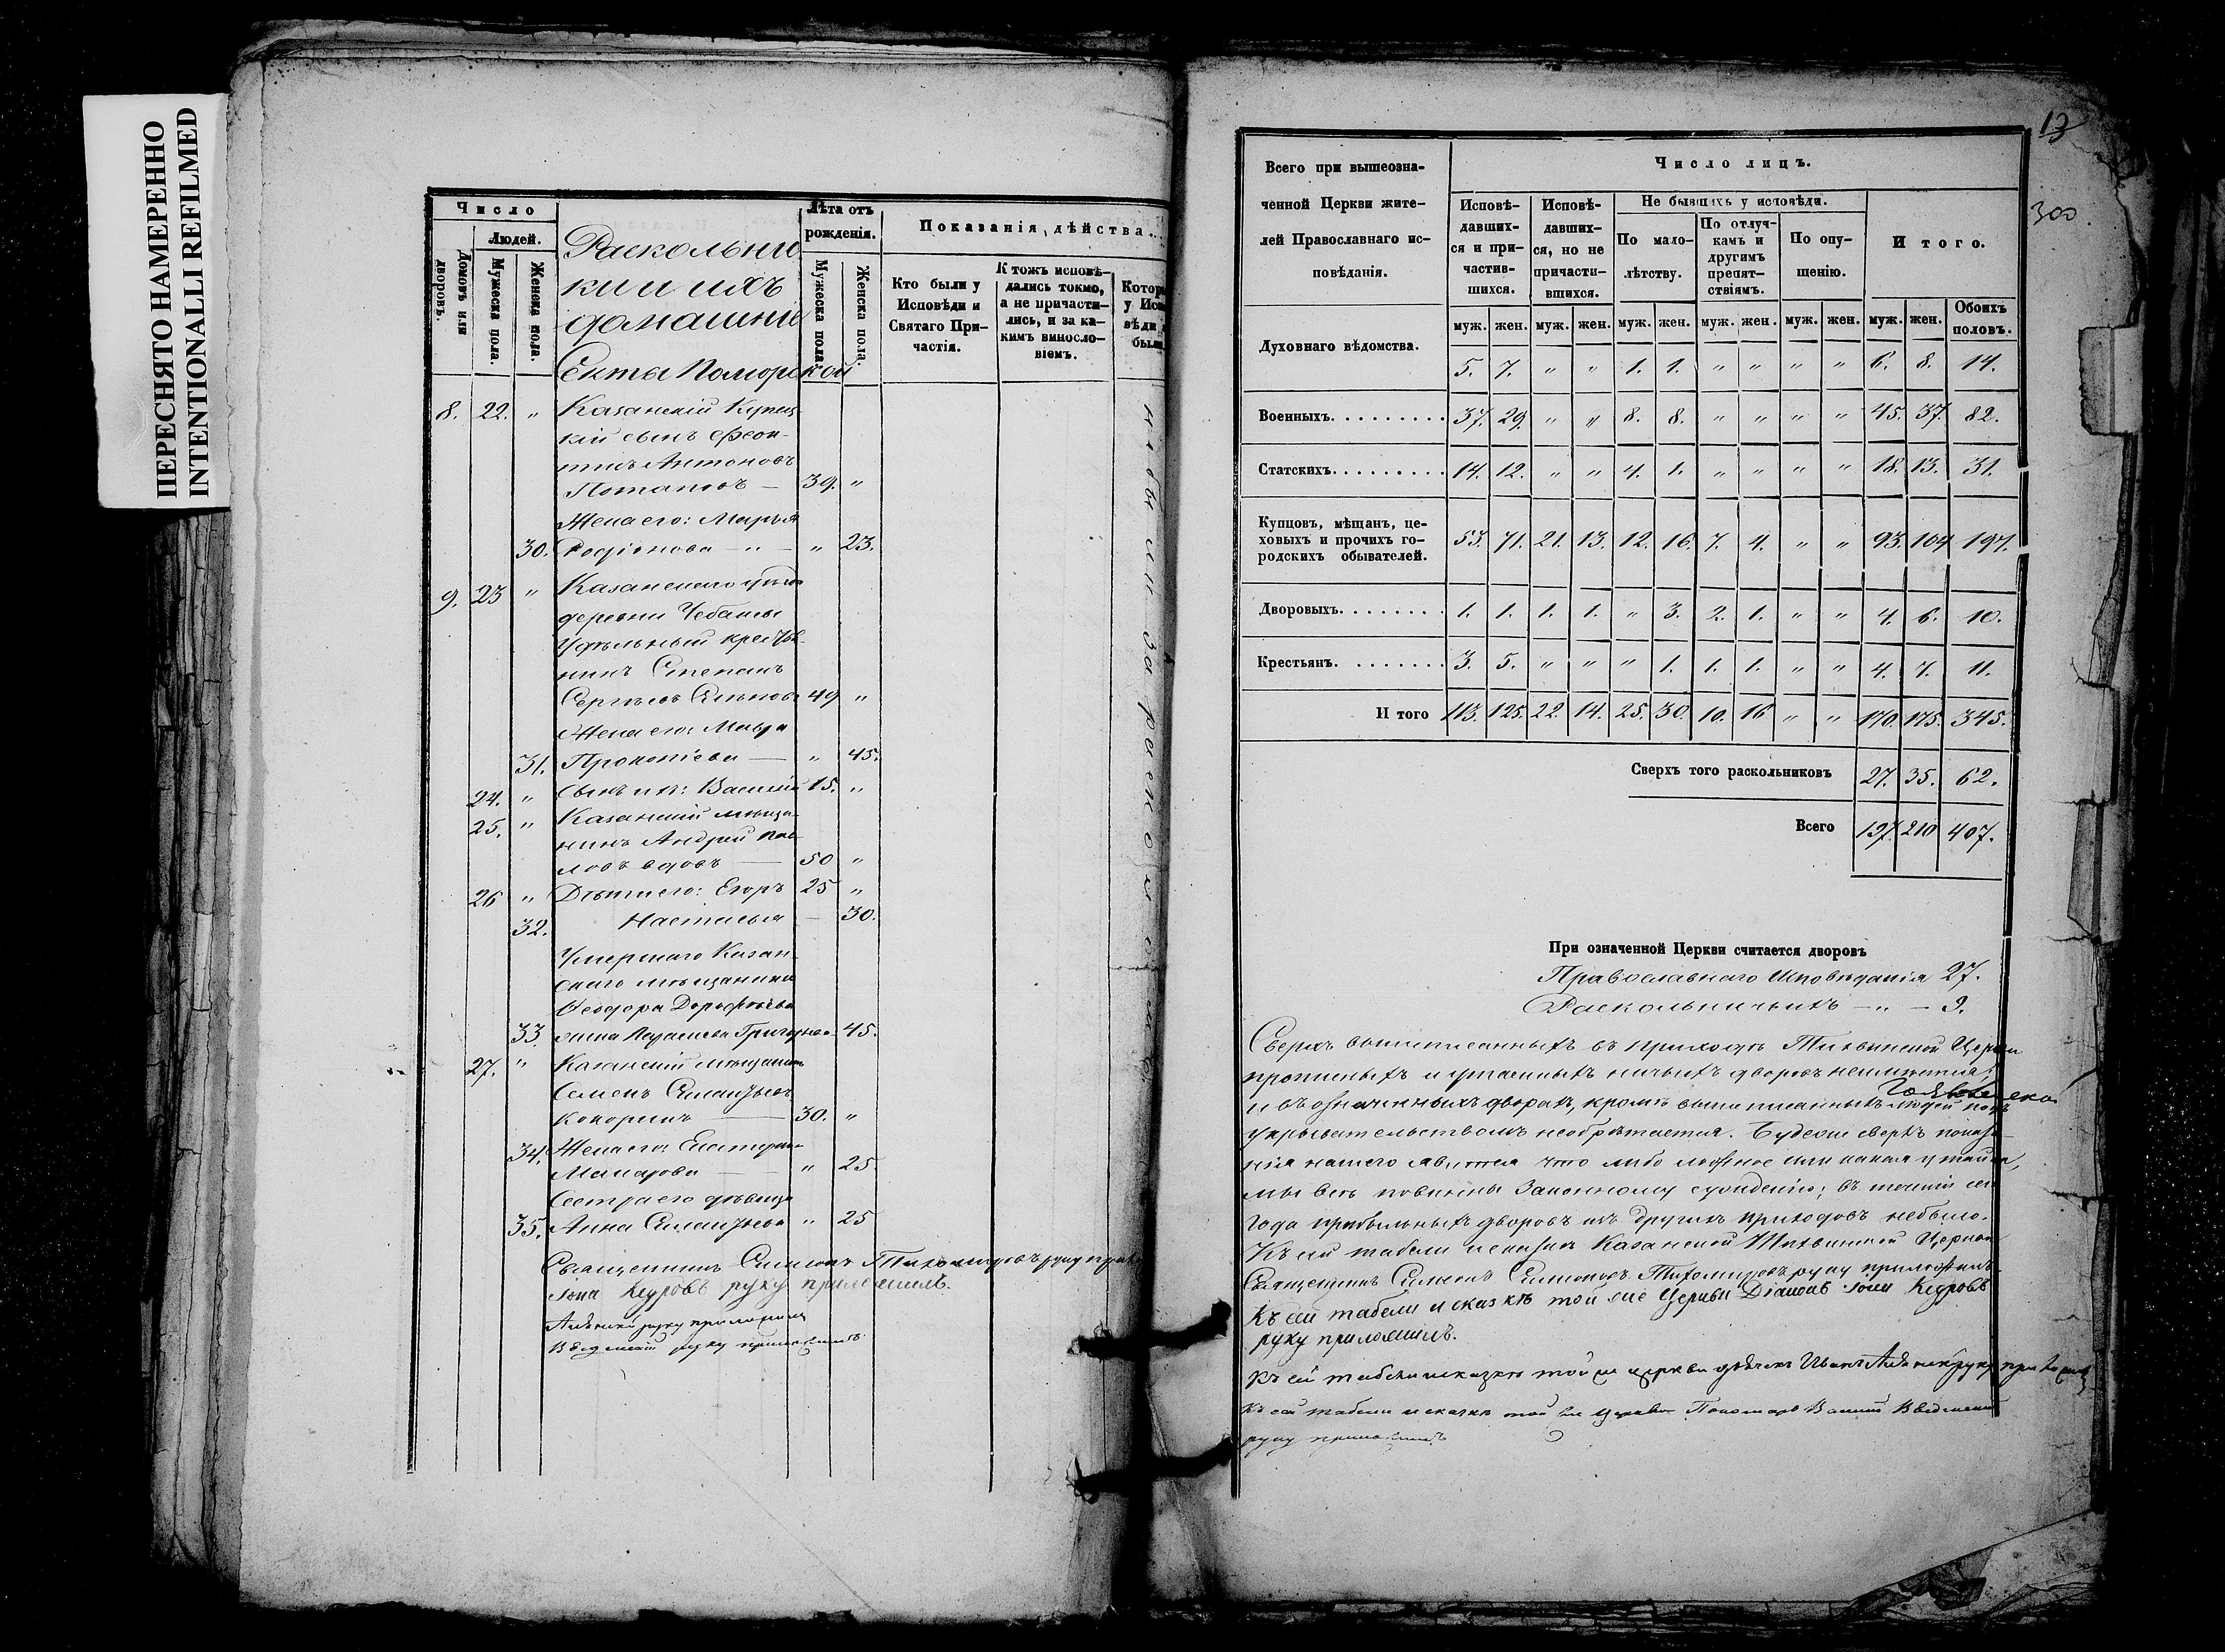 ПЕРЕСНЯТО НАМЕРЕННО
INTENTIONALLI REFILMED
Число
Людей.
Домовъ или дворовъ.
Мужеска пола.
Женска пола.
Раскольни
ки и ихъ
домашніе
Секты Поморской
Лѣта отъ рожденія.
Мужеска пола.
Женска пола.
Показанія дѣйства.
Кто были у Исповѣди и Святаго Причастія.
К тожъ исповѣдались токмо, а не причастились, и за какимъ винословіемъ.
8. 22. " Казанскій Купец
кій сынъ Леон
тій Антоновъ
Потаповъ — 39. "
Жена его: Марья
30. Родіонова — " — " 23.
9. 23 " Казанскаго уѣзда
деревни Чебаксы
Удѣльный кресть
нинъ Степанъ
Сергѣевъ 49 "
Жена его: Мавра
31. Прокопіева — " 45.
24. " Сынъ ихъ: Василій 15. "
25. " Казанскій мѣща
нинъ Андрей Пав
ловъ вдовъ — 50 "
26 " Дѣти его: Егоръ 25 "
32. Настасья — 30.
Умершаго Казан
скаго мѣщанина
Ѳеодора Дорофѣева
33. жена Григорьева 45.
27. " Казанскій мѣщанинъ
Семенъ
30. "
34. Жена его: Екатерина
Макарова — " 25
Сестра его дѣвица
35. Анна " 25
Священникъ Симеонъ Тихомировъ руку
Іона Кедровъ руку приложилъ.
руку приложилъ
Введенскій руку приложилъ
ни бы ли за расколомъ
13
300
Всего при вышеозначенной Церкви жителей Православнаго исповѣданія.
Число лицъ.
Исповѣдавшихся и причастившихся.
Исповѣдавшихся, но не причастившихся.
Не бывшихъ у исповѣди.
По малолѣтству.
По отлучкамъ и другимъ препятствіямъ.
По опущенію.
Итого.
муж. жен. муж. жен. муж. жен. муж. жен. муж. жен. муж. жен. Обоихъ половъ.
Духовнаго вѣдомства. 5. 7. " " 1. 1. " " " " 6. 8. 14.
Военныхъ. 37. 29. " " 8. 8. " " " " 45. 37. 82.
Статскихъ. 14. 12. " " 4. 1. " " " " 18. 13. 31.
Купцовъ, мѣщанъ, цеховыхъ и прочихъ городскихъ обывателей. 53. 71. 21. 13. 12. 16. 7. 4. " " 93. 104 197.
Дворовыхъ. 1. 1. 1. 1. " 3. 2. 1. " " 4. 6. 10.
Крестьянъ. 3. 5. " " " 1. 1. 1. " " 4. 7. 11.
Итого 113. 125. 22. 14. 25. 30. 10. 16 " " 170. 175. 345.
Сверхъ того раскольниковъ 27. 35. 62.
Всего 197. 210 407.
При означенной Церкви считается дворовъ
Православнаго Исповѣданія 27.
Раскольничьихъ — " — 9.
Сверхъ вышеписанныхъ въ приходѣ Тихвинской Церкви
прописныхъ и утаенныхъ ничьихъ дворовъ неимѣется;
и въ означенныхъ дворахъ, кромѣ вышеписанныхъ людей подъ
укрывательствомъ необрѣтается. Буде же сверхъ показа
нія нашего явится что либо ложное или какая утайка,
мы всѣ повинны Законному сужденію; въ теченіи сего
года прибыльныхъ дворовъ изъ другихъ приходовъ небыло.
Къ сей табели и сказкѣ Казанской Тихвинской Церкви
Священникъ Симеонъ Симоновъ Тихомировъ руку приложилъ
Къ сей табели и сказкѣ той же Церкви Діаконъ Іона Кедровъ
руку приложилъ.
Къ сей табели и сказкѣ той же церкви дьячекъ Иванъ руку приложилъ
Къ сей табели и сказкѣ той же церкви Пономарь Введенскій
руку приложилъ